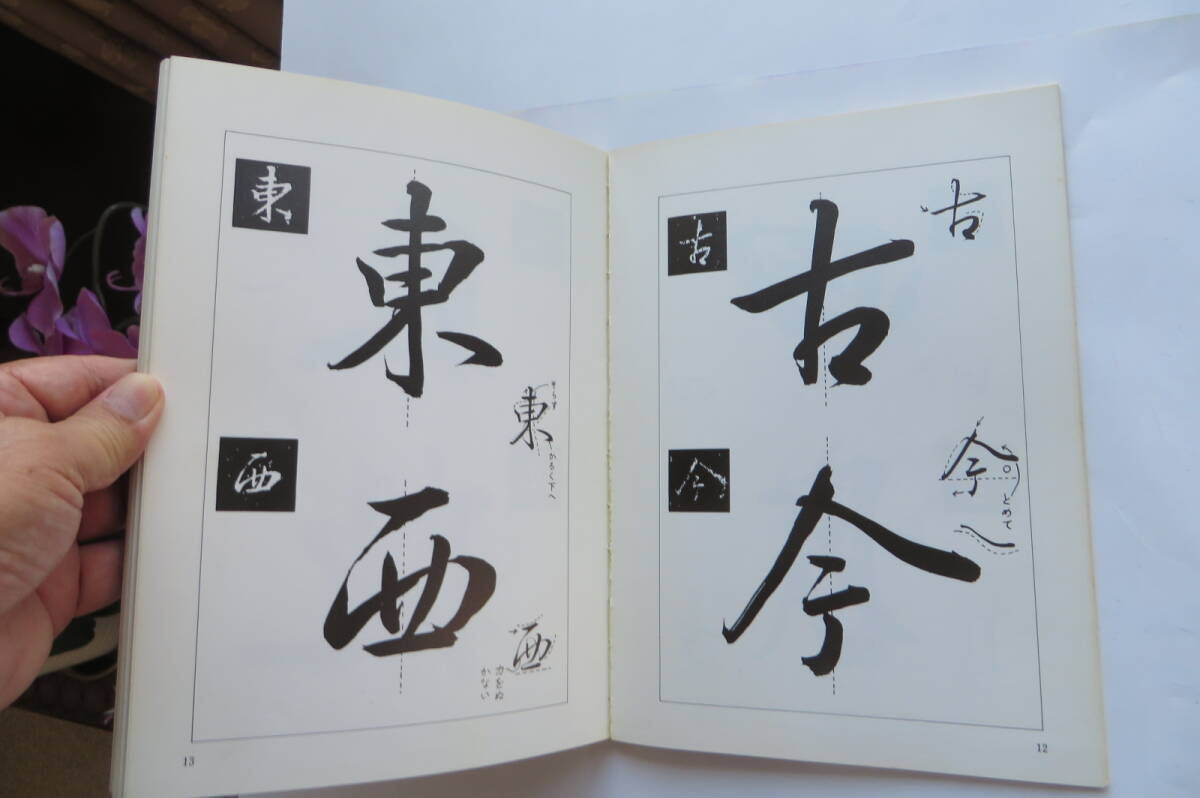 古
古
古
今
今
今
とめて
12
東
東
東
そらす
かるく下へ
西
西
西
力をぬ
かない
13